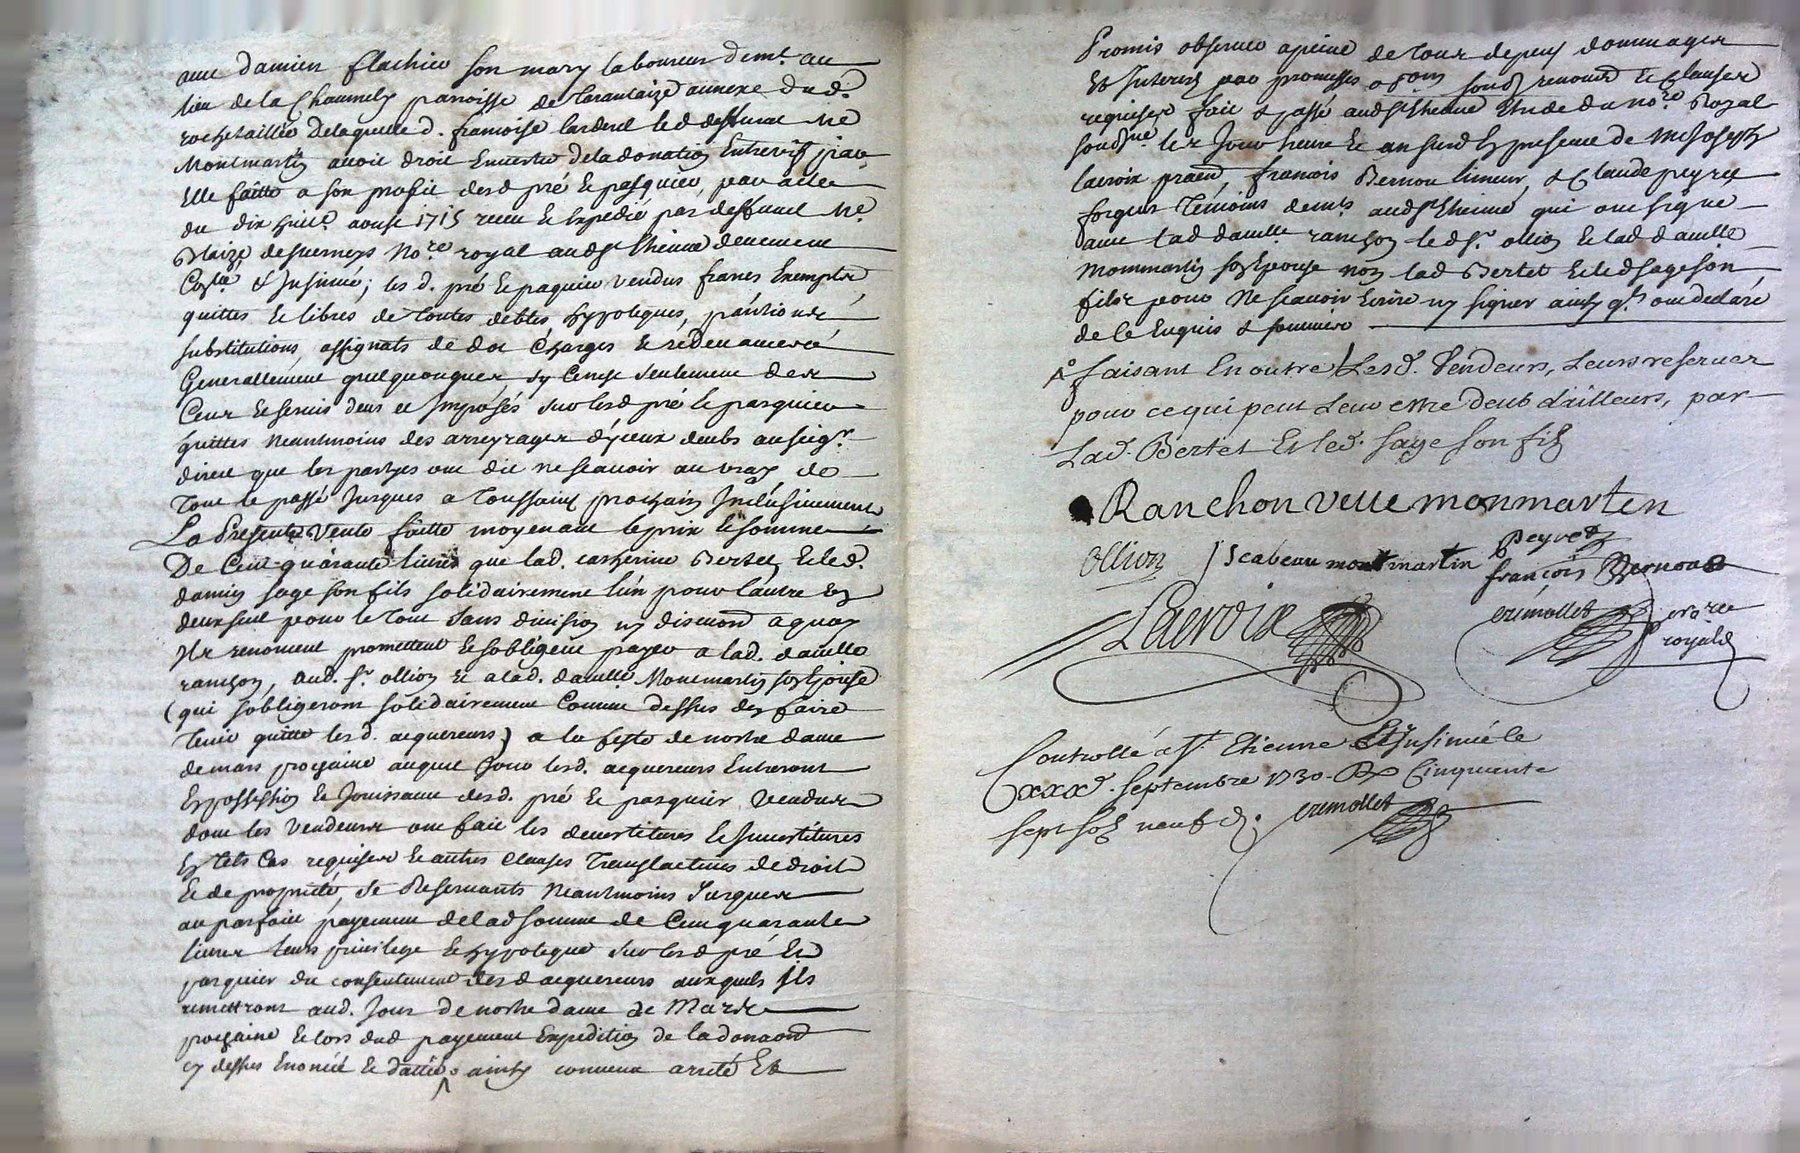 avec Damien flachier son mary laboureur demt. au
lieu de la Chaumely paroisse de tarantaize annexe dud.
rochetaillée de laquelle d. francoise larderel led deffunct Me
Montmartin avoit droit En vertu de la donation Entrevifs par
Elle faitte a son profit desd pré Et pasquier, par acte
du dix huict. aoust 1715 receu Et Expedié par deffunct Me.
Blaize desverneys Nore royal aud St Etienne deuement
Colé & Insinué; les d. pré Et paquier vendus francs Exempts,
quittes Et libres de toutes debtes hypoteques, pentions
substitutions, assignats de dot Charges Et redevances
Generallement quelquonques, sy Ce nest seulement des
Cens Et servis deus et Imposés sur lesd pré Et pasquier
quittes neantmoins des arreyrages d'yceux deubs au seigr.
direct que les partyes ont dit ne scavoir au vray de
Tout le passé Jusques a Toussaint prochain Inclusivement
La Presente Vente faitte moyenant le prix Et somme
De Cent quarante livres que lad. catherine Bertet, Et led.
damien sage son fils solidairement l'un pour l'autre Et
deux seul pour le tout sans division ny discution a quoy
Ils renoncent promettent Et sobligent payer a lad. damlle
ranchon, aud. sr. ollion Et a lad. damlle Montmartin son Epouse
(qui sobligeront solidairement Comme dessus den faire
tenir quitte lesd. acquereurs) a la feste de nostre dame
de mars prochaine auquel Jour lesd. acquereurs Entreront
En possession Et Jouissance desd. pré Et pasquier Vendus
dont les Vendeurs ont fait les devestitures Et Investitures
En tels Cas requises Et autres clauses Translatives de droit
Et de proprieté, se Reservants Neantmoins Jusques
au parfait payement de lad somme de Cent quarante
livres leurs privilege Et hypoteque sur lesd pré Et
pasquier du consentement desd acquereurs auxquels Ils
remettront aud. Jour de nostre dame de Mars
prochaine Et lors dud payement Expedition de la donaon
cy dessus Enoncée Et dattée ^ ainsy convenu arreté Et
Promis observer a peine de tous depens dommages
Et Interets par promesses obons soubs renons Et Clauses
requises fait & passé aud St Etienne Etude du nore Royal
soubne les Jour heure Et an susd En presence de Me Joseph
lacroix praen, francois Bernou limeur, & Claude peyret
forgeur Témoins demts aud St Etienne qui ont signé
avec lad damlle ranchon led sr. ollion Et lad damlle
Montmartin son Epouse non lad Bertet Et led sage son
fils pour Ne scavoir Ecrire ny signer ainsy qls ont declaré
de ce Enquis & sommés
^ faisant En outre Lesd. Vendeurs, Leurs reserves
pour ce qui peut Leur estre deub d'ailleurs, par
Lad. Bertet Et led. sage son fils
Ranchon veuve monmarten
ollion Iscabeau montmartin Peyret
françois Bernou
Lacroix crimollet nore
royal
Controllé a St. Etienne Et Insinué le
xxx. septembre 1730. R Cinquante
sept sols neuf d. crimollet